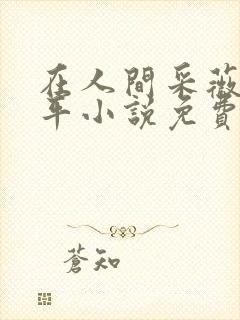 在人間采薇
年小說免費
蒼知